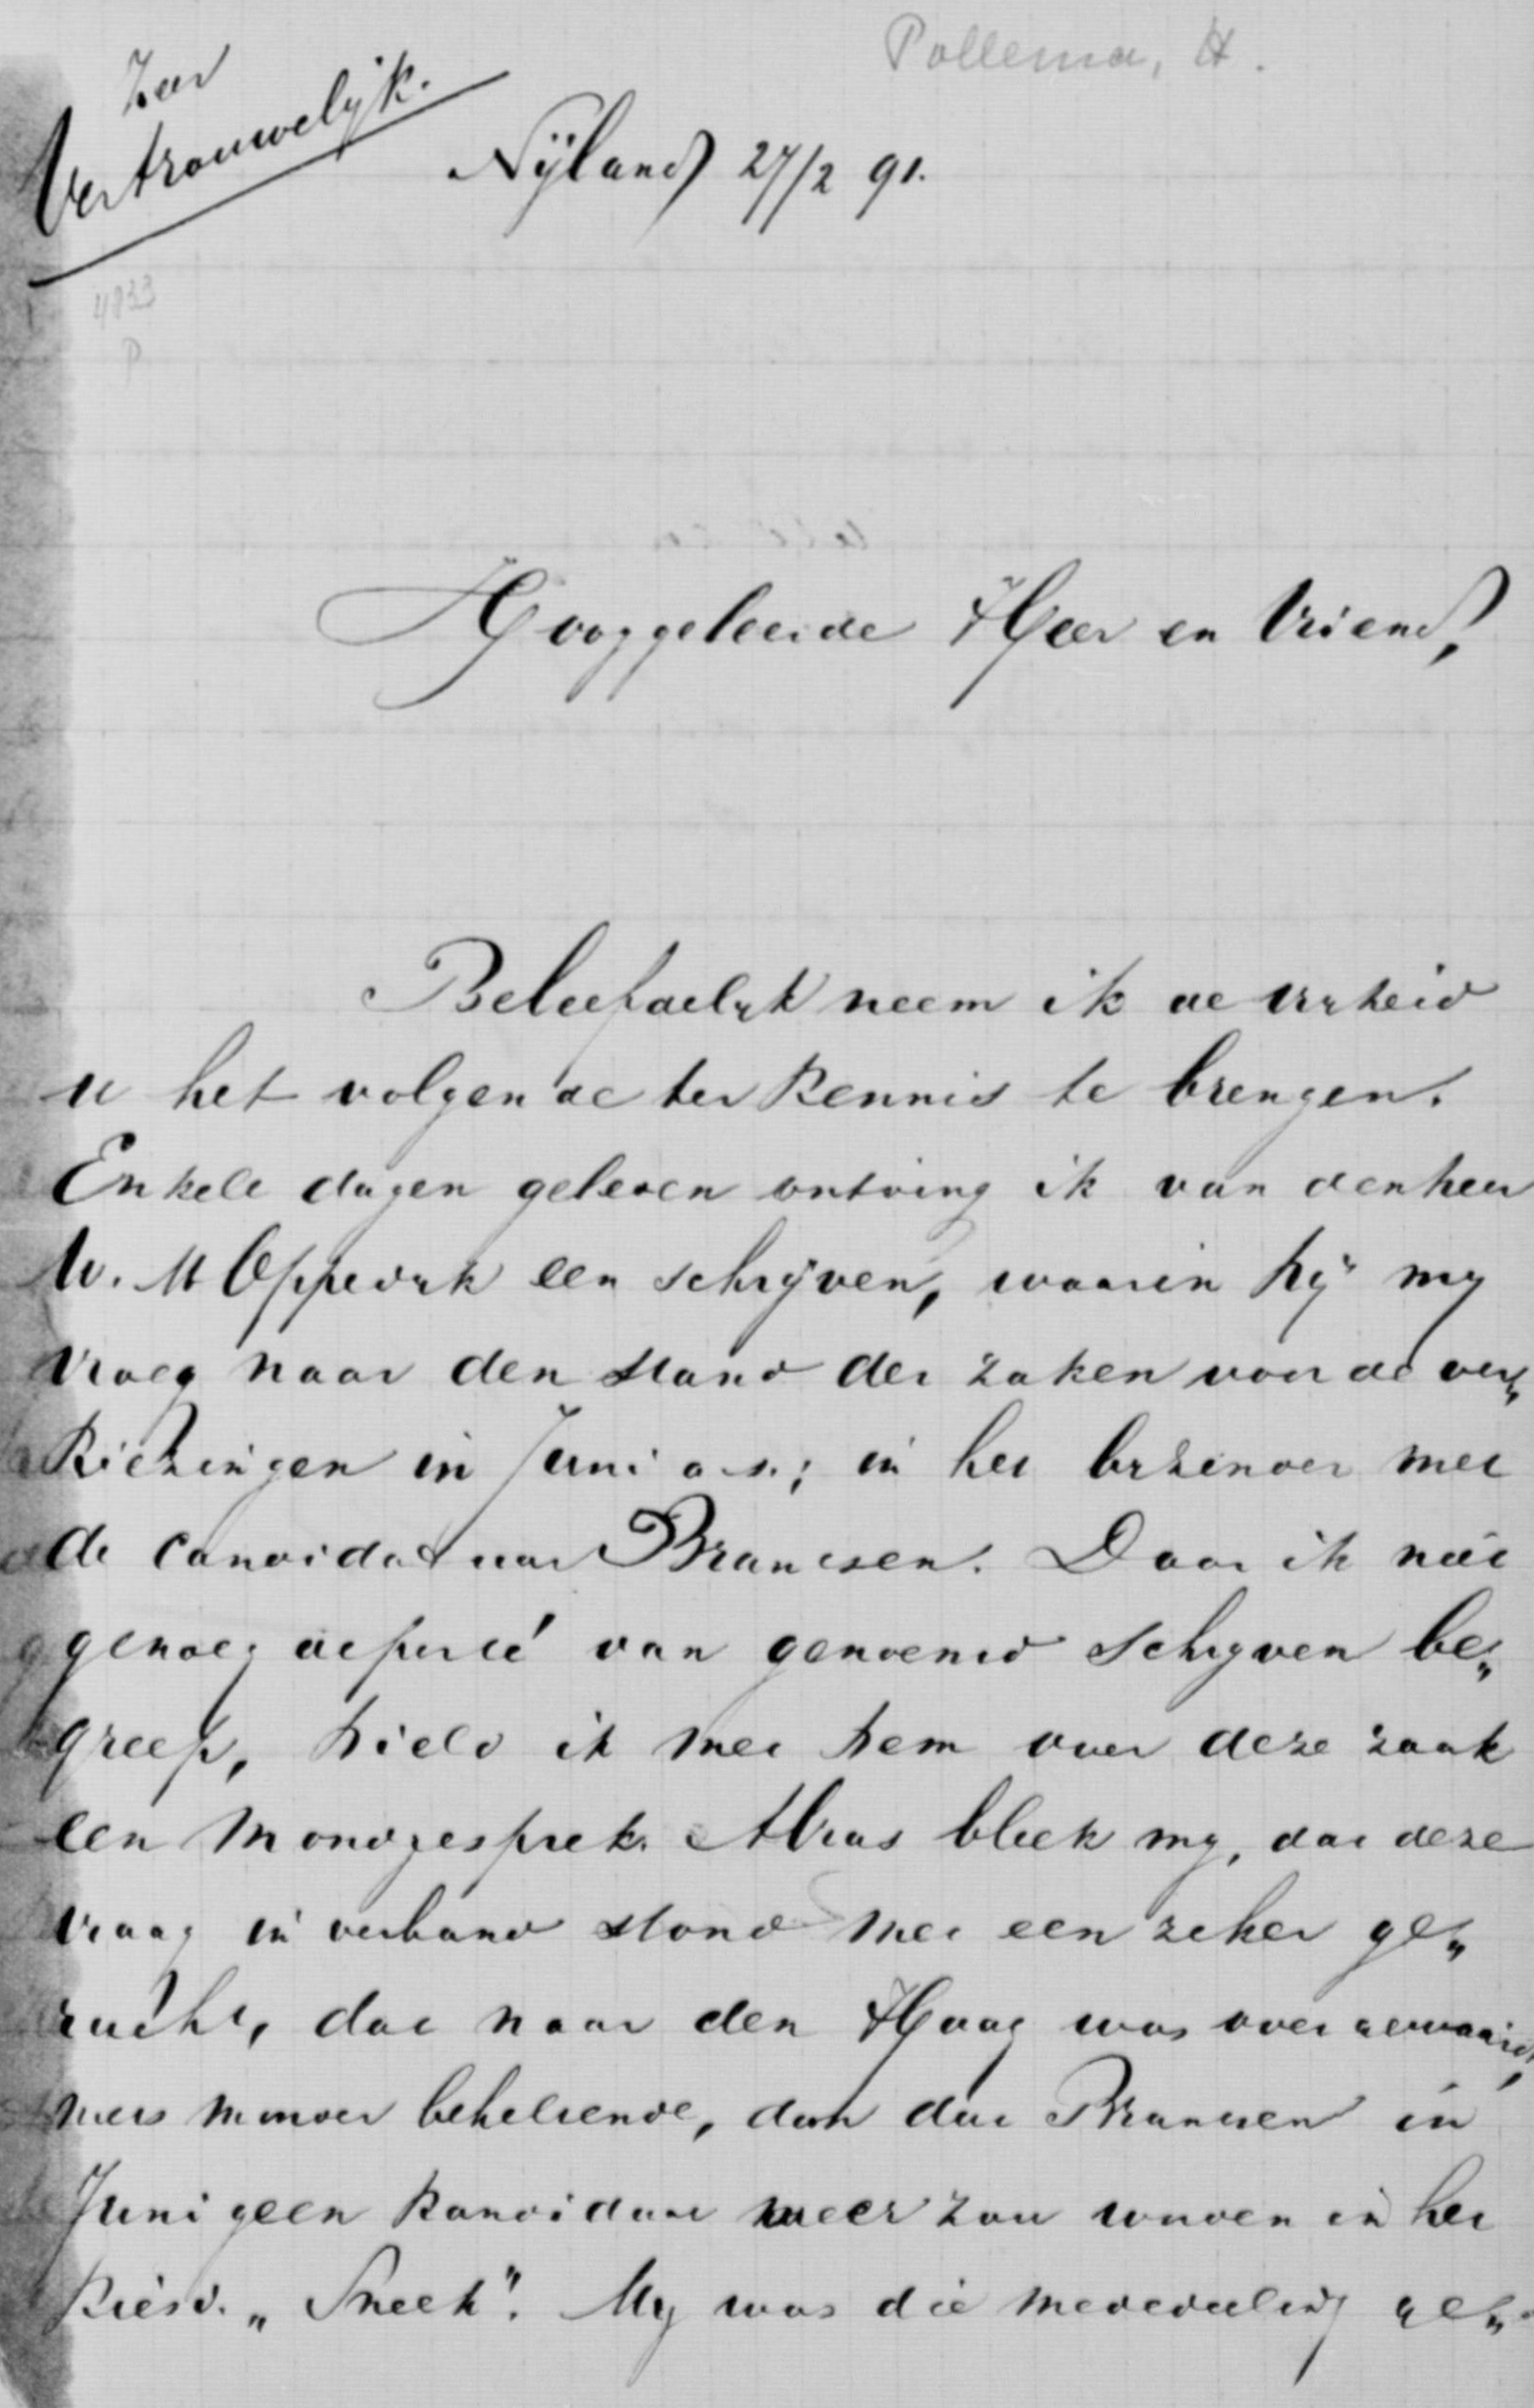 Pollema, H.
Zeer
Vertrouwelijk.
Nijland 27/2 91.
4833
P
Hooggeleerde Heer en Vriend,
Beleefdelyk neem ik de vryheid
u het volgende ter kennis te brengen.
Enkele dagen geleden ontving ik van den heer
W. M Oppedyk een schrijven, waarin hij my
vroeg naar den stand der zaken voor de ver„
kiezingen in Juni a.s.; in het byzonder met
de candidatuur Brantsen. Daar ik niet
genoeg de porté van genoemd schryven be„
greep, hield ik met hem over deze zaak
een mondgesprek. Alras bleek my, dat deze
vraag in verband stond met een zeker ge„
rucht, dat naar den Haag was overgewaaid,
niets minder behelsende, dan dat Brantsen in
Juni geen kandidaat meer zou worden in het
kiesd. „Sneek". My was die mededeeling ge„